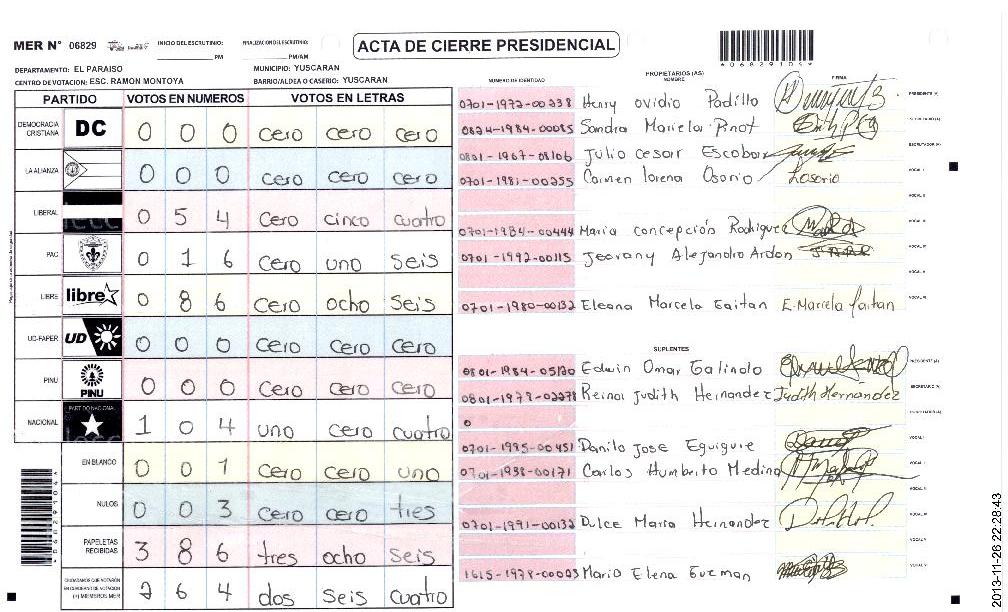 MER N° 06829
INICIO DEL ESCRUTINIO: PM
FINALIZACION DEL ESCRUTINIO: PM/AM
ACTA DE CIERRE PRESIDENCIAL
DEPARTAMENTO: EL PARAISO
MUNICIPIO: YUSCARAN
CENTRO DE VOTACION: ESC. RAMON MONTOYA
BARRIO/ALDEA O CASERIO: YUSCARAN
PARTIDO VOTOS EN NUMEROS VOTOS EN LETRAS
DEMOCRACIA CRISTIANA DC 0 0 0 cero cero cero
LA ALIANZA 0 0 0 cero cero cero
LIBERAL 0 5 4 cero cinco cuatro
PAC 0 1 6 cero uno seis
LIBRE libre 0 8 6 cero ocho seis
UD-FAPER UD 0 0 0 cero cero cero
PINU PINU 0 0 0 cero cero cero
NACIONAL PARTIDO NACIONAL 1 0 4 uno cero cuatro
EN BLANCO 0 0 1 cero cero uno
NULOS 0 0 3 cero cero tres
PAPELETAS RECIBIDAS 3 8 6 tres ocho seis
CIUDADANOS QUE VOTARON EN CUADERNO DE VOTACION (+) MIEMBROS MER 2 6 4 dos seis cuatro
NUMERO DE IDENTIDAD PROPIETARIOS (AS) NOMBRE FIRMA
0701-1972-00238 Henry ovidio Padillo PRESIDENTE (A)
0824-1984-00085 Sandra Mariela Pinot SECRETARIO (A)
0801-1967-08106 Julio cesar Escobar ESCRUTADOR (A)
0701-1981-00255 Carmen lorena Osorio Losorio VOCAL I
VOCAL II
0701-1984-00444 Maria concepción Rodriguez VOCAL III
0701-1992-00115 Jeovany Alejandro Ardon VOCAL IV
VOCAL V
0701-1980-00132 Eleana Marcela Gaitan E. Marcela Gaitan VOCAL VI
SUPLENTES
0801-1984-05120 Edwin Omar Galindo PRESIDENTE (A)
0801-1978-02278 Reina Judith Hernandez Judith Hernandez SECRETARIO (A)
0 ESCRUTADOR (A)
0701-1995-00451 Danilo Jose Eguigure VOCAL I
0701-1938-00171 Carlos Humberto Medina VOCAL II
VOCAL III
0701-1991-00132 Dulce Maria Hernandez VOCAL IV
VOCAL V
1615-1978-00003 Mario Elena Guzman VOCAL VI
*06829104*
2013-11-26 22:28:43